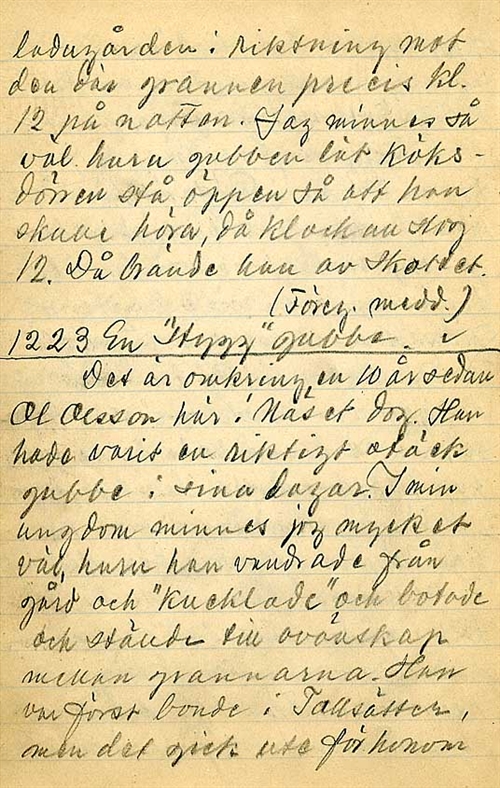 ladugården i riktning mot
den där grannen precis kl.
12 på natten. Jag minnes så
väl huru gubben lät köks-
dörren stå öppen så att han
skulle höra, då klockan slog
12. Då brände han av skottet.
(Föreg. medd.)
1223 En "stygg" gubbe.
Det är omkring en 10 år sedan
Ol Olsson här i Näset dog. Han
hade varit en riktigt otäck
gubbe i sina dagar. I min
ungdom minnes jag mycket
väl, huru han vandrade från
gård och "kucklade" och botade
och stände till ovänskap
mellan grannarna. Han
var först bonde i Tallsätter,
men det gick ute för honom